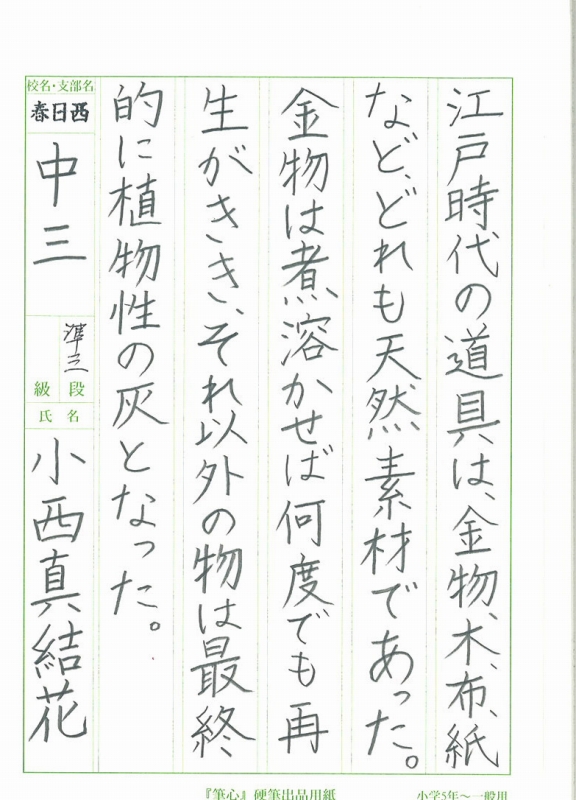 江戸時代の道具は、金物、木、布、紙
など、どれも天然素材であった。
金物は煮溶かせば何度でも再
生がきき、それ以外の物は最終
的に植物性の灰となった。
校名・支部名
春日西
中三
準三
段
級
氏名
小西真結花
『筆心』硬筆出品用紙
小学5年〜一般用